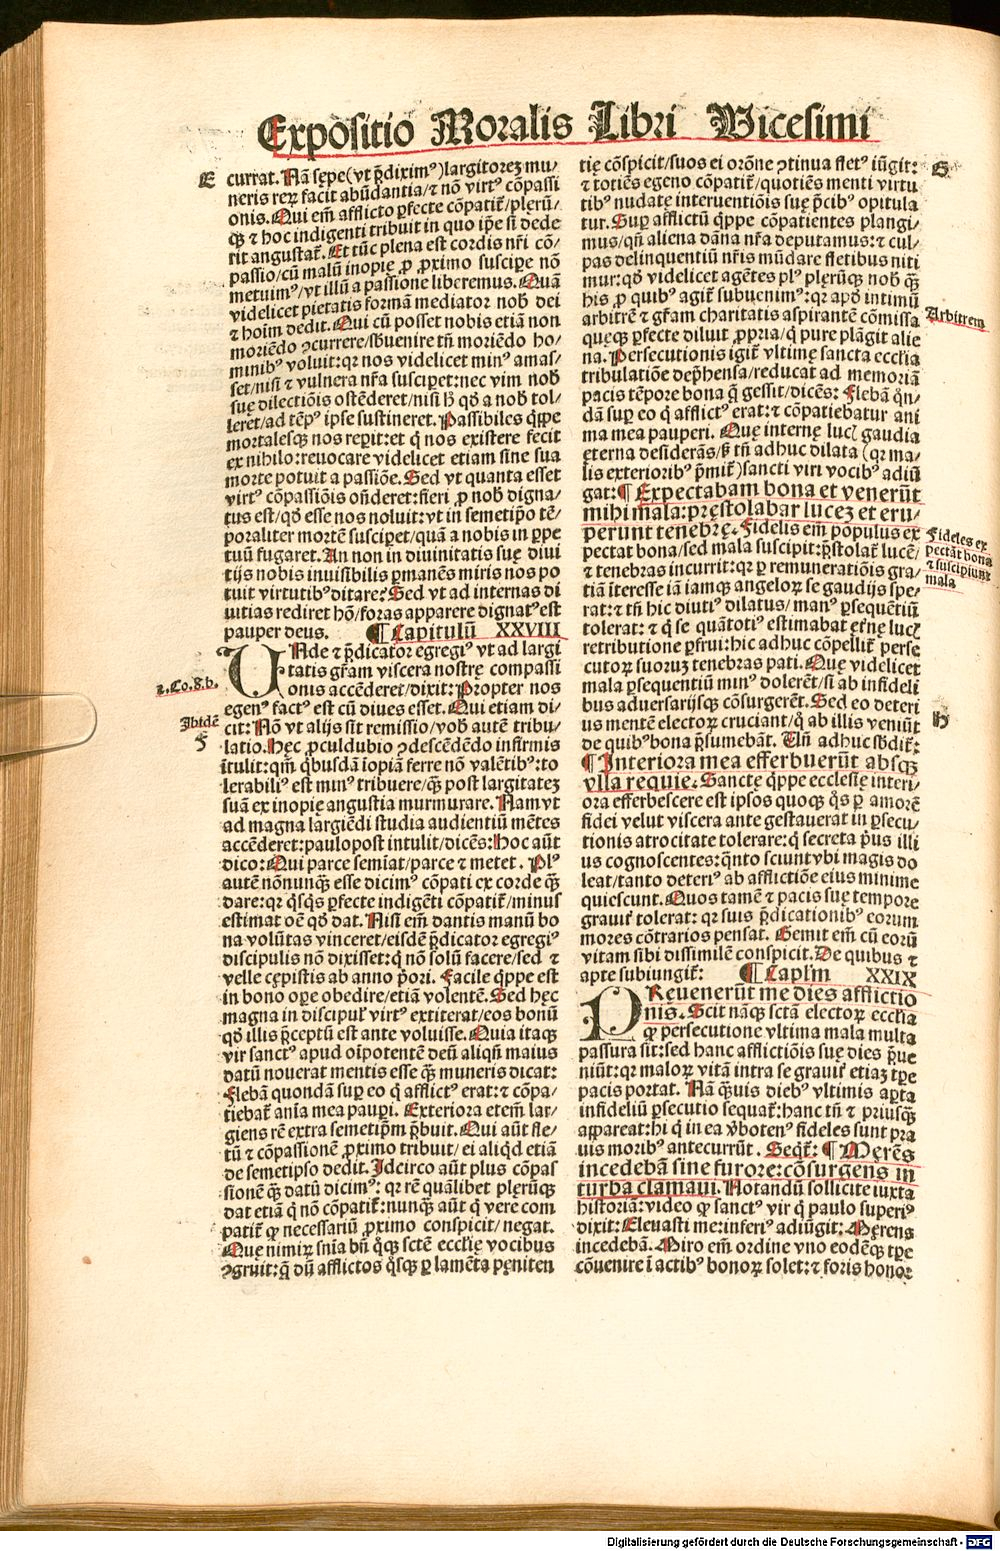 Expositio Moralis Libri Vicesimi
E
currat. Nã sępe (vt p̃diximꝰ) largitoreꝫ mu/
neris reꝝ facit abũdantia/ ⁊ nõ virtꝰ cõpassi
onis. Qui em̃ afflicto ꝑfecte cõpatit̃/ plerũ/
qꝫ ⁊ hoc indigenti tribuit in quo ip̃e si dede
rit angustat̃. Et tũc plena est cordis nr̃i cõ/
passio/ cũ malũ inopię ꝓ ꝓximo suscipe nõ
metuimꝰ/ vt illũ a passione liberemus. Quã
videlicet pietatis formã mediator nob̃ dei
⁊ hoĩm dedit. Qui cũ posset nobis etiã non
moriẽdo ꝯcurrere/ sbuenire tñ moriẽdo ho/
minibꝰ voluit: qꝛ nos videlicet minꝰ amas/
set/ nisi ⁊ vulnera nr̃a susciꝑet: nec vim nob̃
suę dilectiõis ostẽderet/ nisi h̃ qõ a nob̃ tol/
leret/ ad tẽpꝰ ip̃e sustineret. Passibiles q̃ppe
mortalesqꝫ nos reꝑit: et q̃ nos existere fecit
ex nihilo: reuocare videlicet etiam sine sua
morte potuit a passiõe. Sed vt quanta esset
virtꝰ cõpassiõis oñderet: fieri ꝓ nob̃ digna/
tus est/ qõ esse nos noluit: vt in semetip̃o tẽ/
poraliter mortẽ susciꝑet/ quã a nobis in ꝑpe
tuũ fugaret. An non in diuinitatis suę diui
tijs nobis inuisibilis ꝑmanẽs miris nos po
tuit virtutibꝰ ditare? Sed vt ad internas di
uitias rediret hõ/ foras apparere dignatꝰ est
pauper deus. ¶ Capitulũ XXVIII
UNde ⁊ p̃dicator egregiꝰ vt ad largi
tatis gr̃am viscera nostrę compassi
onis accẽderet/ dixit: Propter nos
egenꝰ factꝰ est cũ diues esset. Qui etiam di/
cit: Nõ vt alijs sit remissio/ vob̃ autẽ tribu/
latio. Hęc ꝓculdubio ꝯdescẽdẽdo infirmis
ĩtulit: qm̃ q̃busdã iopiã ferre nõ valẽtibꝰ: to
lerabiliꝰ est minꝰ tribuere/ qꝫ post largitateꝫ
suã ex inopię angustia murmurare. Nam vt
ad magna largiẽdi studia audientiũ mẽtes
accẽderet: paulopost intulit/ dicẽs: Hoc aũt
dico: Qui parce semĩat/ parce ⁊ metet. Plꝰ
autẽ nõnunqꝫ esse dicimꝰ cõpati ex corde qꝫ
dare: qꝛ q̃sq̃s ꝑfecte indigẽti cõpatit̃/ minus
estimat oẽ qõ dat. Nisi em̃ dantis manũ bo
na volũtas vinceret/ eisdẽ p̃dicator egregiꝰ
discipulis nõ dixisset: q̃ nõ solũ facere/ sed ⁊
velle cępistis ab anno p̃ori. Facile q̃ppe est
in bono oꝑe obedire/ etiã volentẽ. Sed hęc
magna in discipul̃ virtꝰ extiterat/ eos bonũ
qõ illis p̃ceptũ est ante voluisse. Quia itaqꝫ
vir sanctꝰ apud oĩpotentẽ deũ aliqñ maius
datũ nouerat mentis esse qꝫ muneris dicat:
Flebã quondã suꝑ eo q̃ afflictꝰ erat: ⁊ cõpa/
tiebat̃ anĩa mea pauꝑi. Exteriora etem̃ lar/
giens rẽ extra semetip̃m p̃buit. Qui aũt fle/
tũ ⁊ cõpassionẽ ꝓximo tribuit/ ei aliqd etiã
de semetipso dedit. Idcirco aũt plus cõpas
sionẽ qꝫ datũ dicimꝰ: qꝛ rẽ quãlibet plerũqꝫ
dat etiã q̃ nõ cõpatit̃: nunqꝫ aũt q̃ vere com
patit̃ qꝫ necessariũ ꝓximo conspicit/ negat.
Quę nimiꝝ sn̄ia bñ q̃qꝫ sctẽ ecclię vocibus
ꝯgruit: q̃ dũ afflictos q̃sqꝫ ꝑ lamẽta pęniten
2. Co. 8. b.
Ibidẽ
G
tię cõspicit/ suos ei orõne ꝯtinua fletꝰ iũgit:
⁊ totiẽs egeno cõpatit̃/ quotiẽs menti virtu
tibꝰ nudatę interuentiõis suę p̃cibꝰ opitula
tur. Suꝑ afflictũ q̃ppe cõpatientes plangi/
mus/ qñ aliena dãna nr̃a deputamus: ⁊ cul/
pas delinquentiũ nr̃is mũdare fletibus niti
mur: qõ videlicet agẽtes plꝰ plerũqꝫ nob̃ qꝫ
his ꝓ quibꝰ agit̃ subuenimꝰ: qꝛ apõ intimũ
arbitrẽ ⁊ gr̃am charitatis aspirantẽ cõmissa
quęqꝫ ꝑfecte diluit ꝓpria/ q̃ pure plãgit alie
na. Persecutionis igit̃ vltimę sancta ecclĩa
tribulatiõe dep̃hensa/ reducat ad memoriã
pacis tẽpore bona q̃ gessit/ dicẽs: Flebã q̃n/
dã suꝑ eo q̃ afflictꝰ erat: ⁊ cõpatiebatur ani
ma mea pauperi. Quę internę lucꝭ gaudia
ęterna desiderãs/ ß tñ adhuc dilata (qꝛ ma/
lis exterioribꝰ p̃mit̃) sancti viri vocibꝰ adiũ
gat: ¶ Expectabam bona et venerũt
mihi mala: pręstolabar luceꝫ et eru/
perunt tenebrę. Fidelis em̃ populus ex
pectat bona/ sed mala suscipit: p̃stolat̃ lucẽ/
⁊ tenebras incurrit: qꝛ ꝑ remuneratiõis gra/
tiã ĩteresse iã iamqꝫ angeloꝝ se gaudijs spe/
rat: ⁊ tñ hic diutiꝰ dilatus/ manꝰ ꝑsequẽtiũ
tolerat: ⁊ q̃ se quãtotiꝰ estimabat ęt̃nę lucꝭ
retributione ꝑfrui: hic adhuc cõpellit̃ perse
cutoꝝ suoruꝫ tenebras pati. Quę videlicet
mala ꝑsequentiũ minꝰ dolerẽt/ si ab infideli
bus aduersarijsqꝫ cõsurgerẽt. Sed eo deteri
us mentẽ electoꝝ cruciant/ q̃ ab illis veniũt
de quibꝰ bona p̃sumebãt. Uñ adhuc sbdit̃:
¶ Interiora mea efferbuerũt absqꝫ
vlla requie. Sanctę q̃ppe ecclesię interi/
ora efferbescere est ipsos quoqꝫ q̃s ꝑ amorẽ
fidei velut viscera ante gestauerat in ꝑsecu/
tionis atrocitate tolerare: q̃ secreta p̃us illi
us cognoscentes: q̃nto sciunt vbi magis do
leat/ tanto deteriꝰ ab afflictiõe eius minime
quiescunt. Quos tamẽ ⁊ pacis suę tempore
grauit̃ tolerat: qꝛ suis p̃dicationibꝰ eorum
mores cõtrarios pensat. Gemit em̃ cũ eorũ
vitam sibi dissimilẽ conspicit. De quibus ⁊
apte subiungit̃: ¶ Capl̃m XXIX
PReuenerũt me dies afflictio
nis. Scit nãqꝫ sctã electoꝝ ecclĩa
qꝫ persecutione vltima mala multa
passura sit: sed hanc afflictiõis suę dies p̃ue
niũt: qꝛ maloꝝ vitã intra se grauit̃ etiaꝫ tp̃e
pacis portat. Nã qꝫuis diebꝰ vltimis aꝑta
infideliũ ꝑsecutio sequat̃: hanc tñ ⁊ priusqꝫ
appareat: hi q̃ in ea v̾botenꝰ fideles sunt pra
uis moribꝰ antecurrũt. Seqt̃: ¶ Męrẽs
incedebã sine furore: cõsurgens in
turba clamaui. Notandũ sollicite iuxta
historiã: video qꝫ sanctꝰ vir q̃ paulo superiꝰ
dixit: Eleuasti me: inferiꝰ adiũgit: Męrens
incedebã. Miro em̃ ordine vno eodẽqꝫ tp̃e
cõuenire ĩ actibꝰ bonoꝝ solet: ⁊ foris honoꝛ
Arbitrem
Fideles ex
pectãt bona
⁊ suscipiunt
mala
H
Digitalisierung gefördert durch die Deutsche Forschungsgemeinschaft - DFG